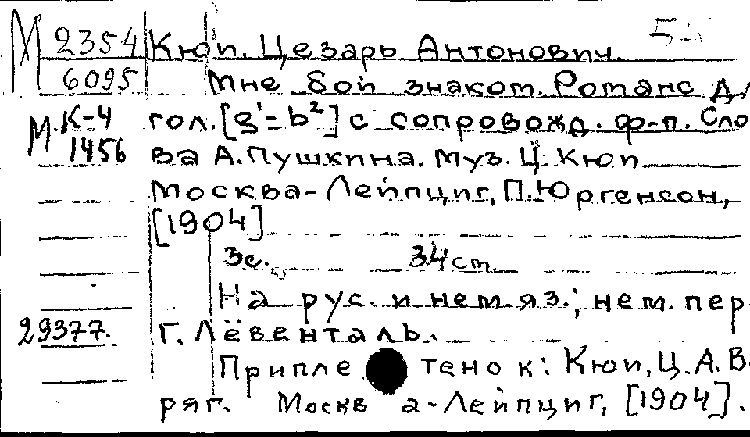 М 2354 Кюи. Цезарь Антонович.
6095 Мне бой знаком. Романс д/
М. К-4 гол. [g¹=b²] с сопровожд. ф-п. Сло
1456 ва А. Пушкина. Муз. Ц. Кюи
Москва-Лейпциг, П. Юргенсон,
[1904]
3с. 34 ст
На рус. и нем яз.; нем. пер
29377. Г. Лёвенталь.
Припле тено к: Кюи, Ц. А. В
ряг. Москв а-Лейпциг, [1904].